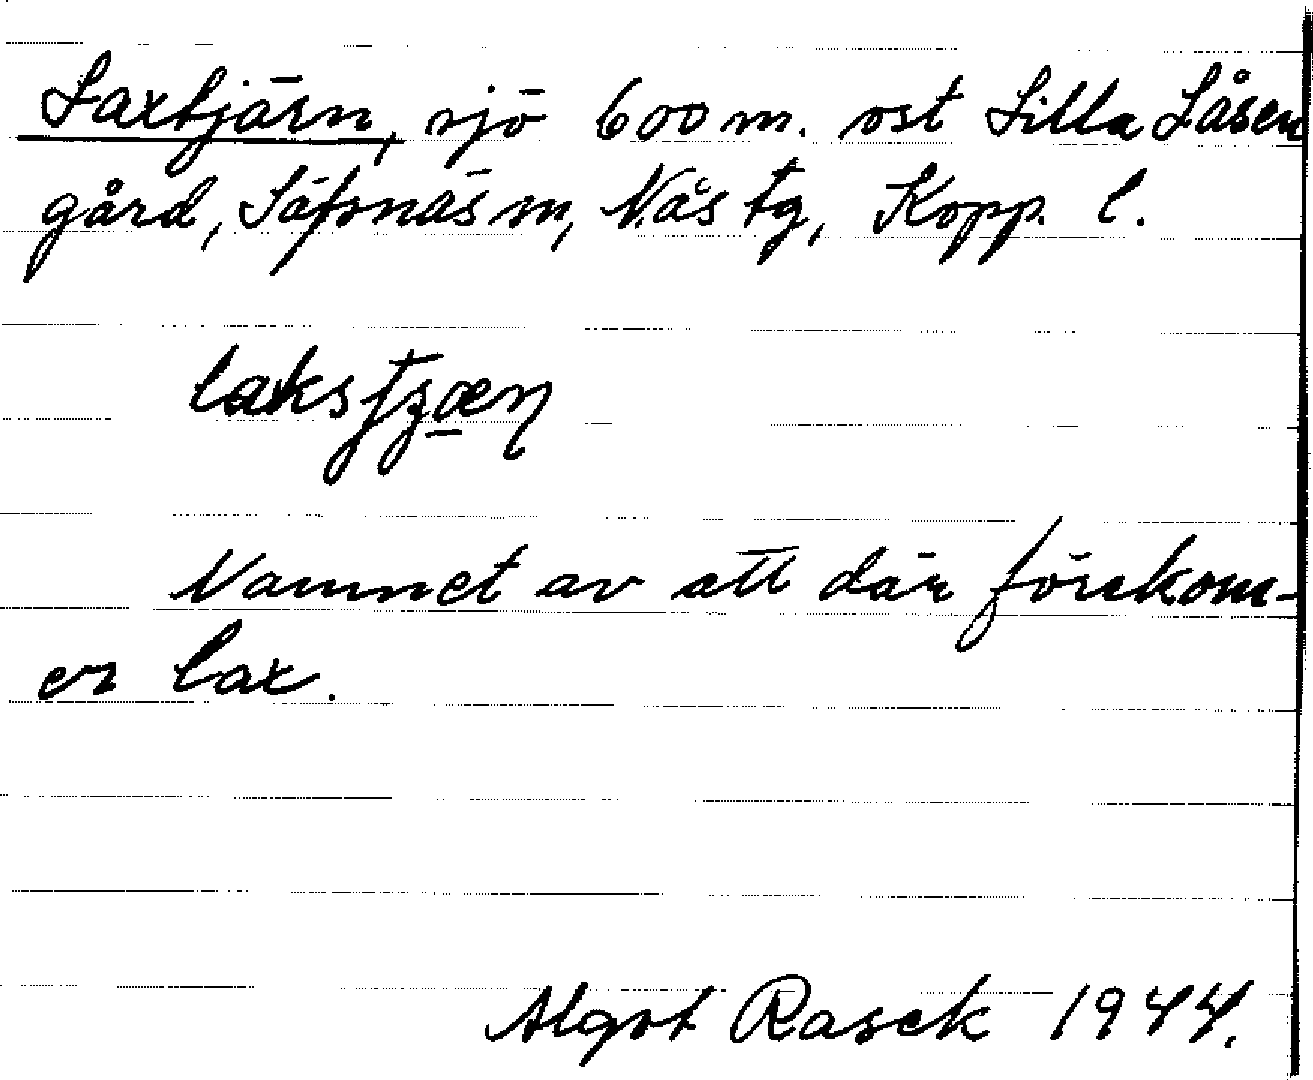 Laxtjärn, sjö 600 m. ost Lilla Låsen
gård, Säfsnäs sn, Nås tg, Kopp. l.
Namnet av att där förekom-
er lax.
Algot Rasek 1944.